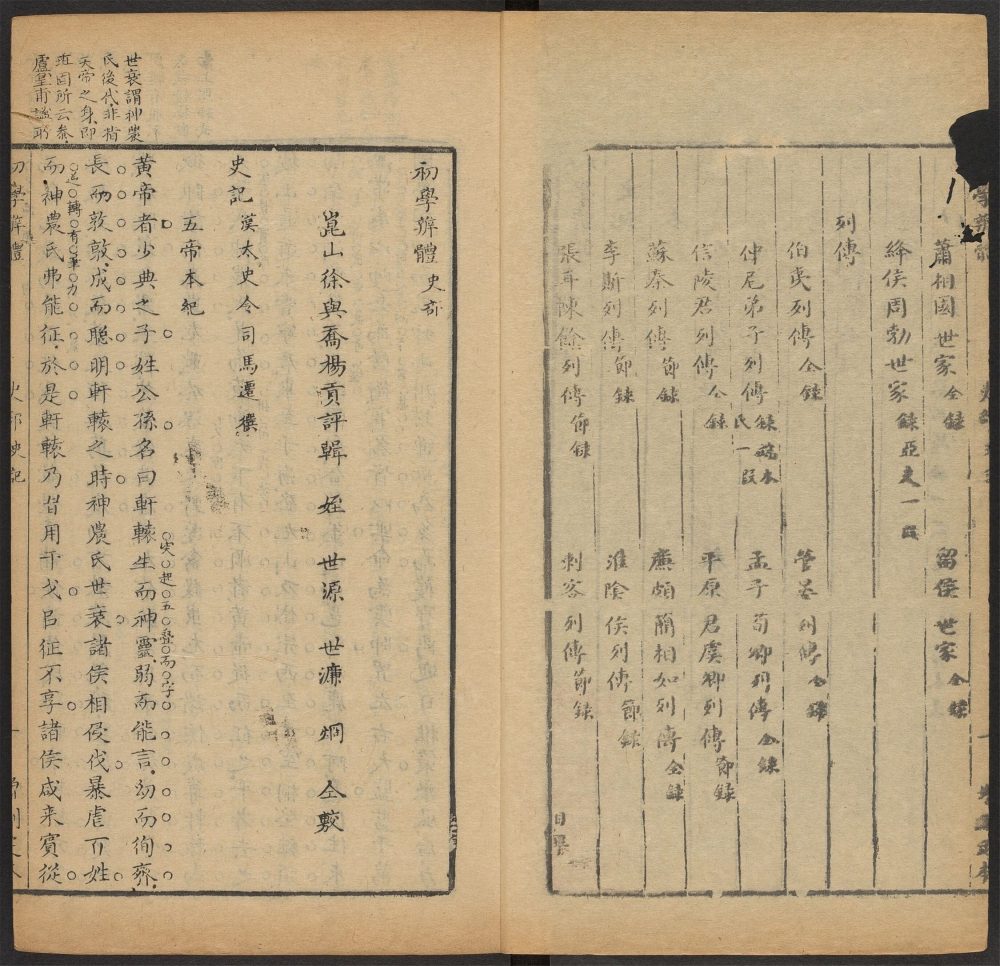 蕭相國世家全錄
留侯世家全錄
絳侯周勃世家錄亞夫一段
列傳
伯夷列傳全錄
管晏列傳全錄
仲尼弟子列傳錄端木氏一段
孟子荀卿列傳全錄
信陵君列傳全錄
平原君虞卿列傳節錄
蘇秦列傳節錄
廉頗藺相如列傳全錄
李斯列傳節錄
淮陰侯列傳節錄
張耳陳餘列傳節錄
刺客列傳節錄
目錄
初學辨體 史部
崑山徐與喬揚貢評輯 姪 世源 世濂 炯 仝較
史記 漢太史令司馬遷 撰
五帝本紀
黃帝者少典之子姓公孫名曰軒轅生而神靈弱而能言幼而徇齊
突起五疊而字
長而敦敏成而聰明軒轅之時神農氏世衰諸侯相侵伐暴虐百姓
而神農氏弗能征於是軒轅乃習用干戈㠯征不享諸侯咸来賓從
轉有筆力
世衰謂神農
氏後代非指
炎帝之身即
班固所云參
盧皇甫謐
初學辨體
史部史記
一